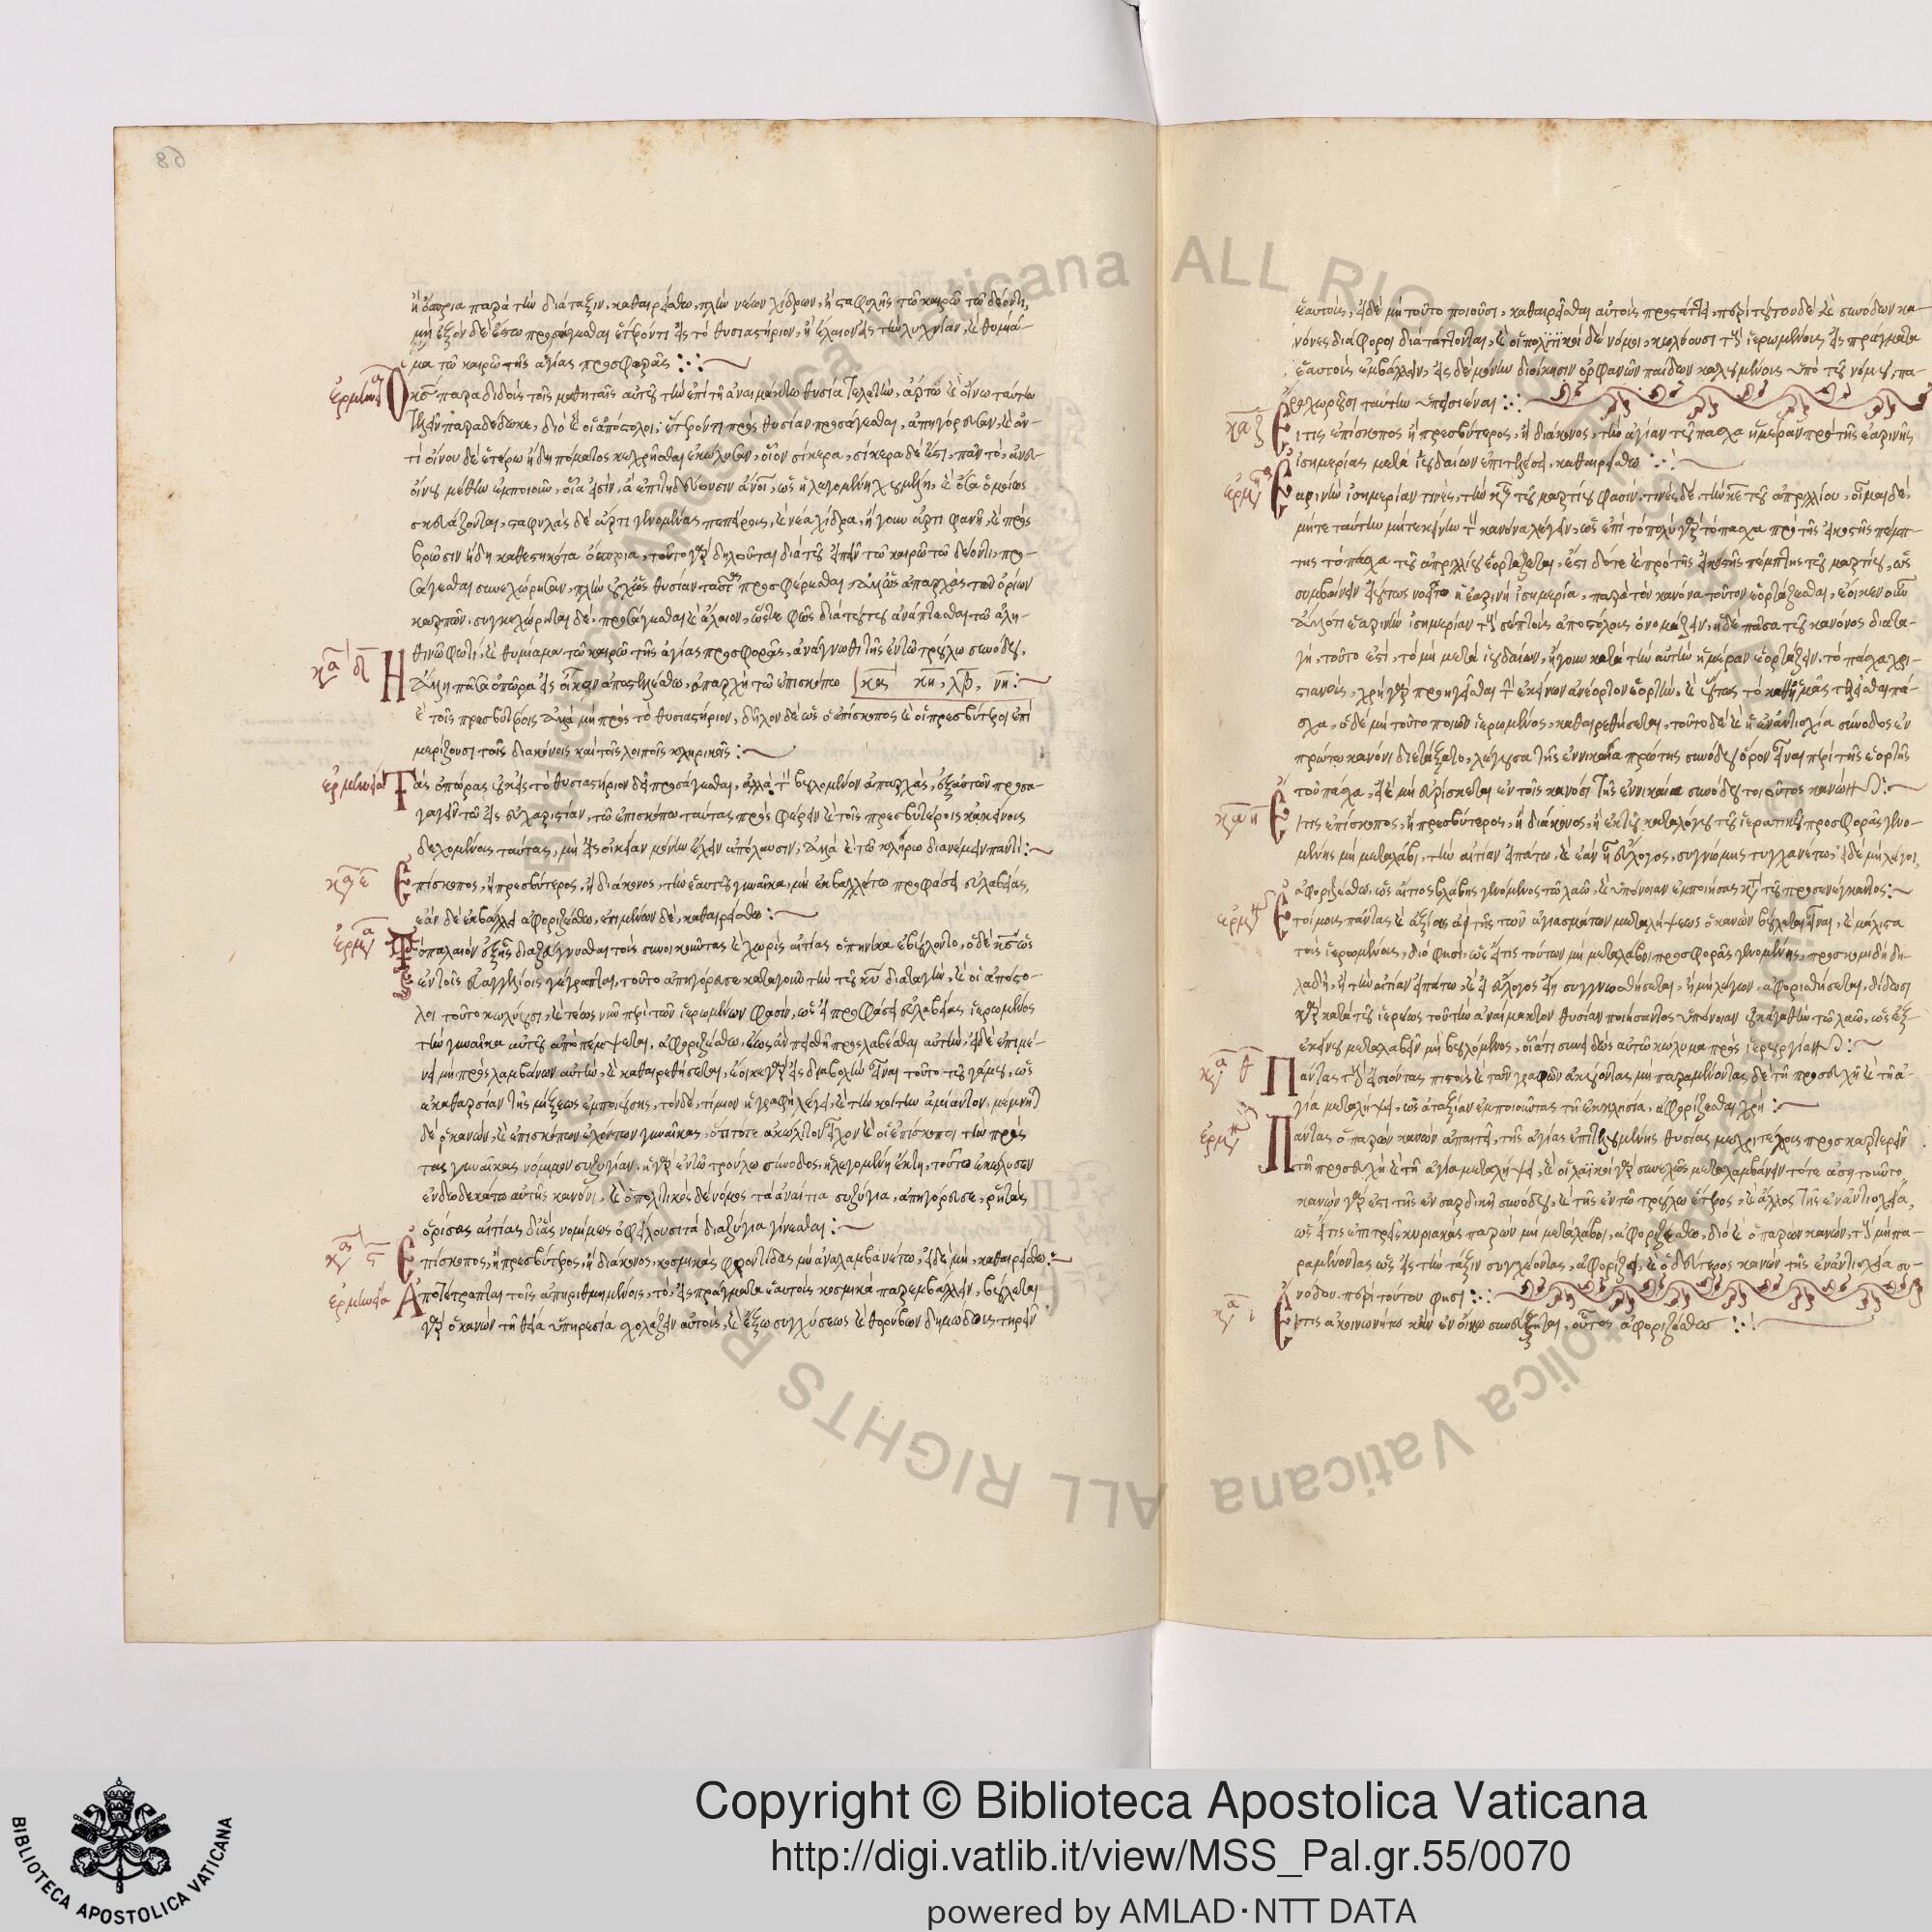 68
ἢ ὄσπρια παρὰ τὴν διάταξιν, καθαιρείσθω, πλὴν νέων χίδρων, ἢ σταφυλῆς τῷ καιρῷ τῷ δέοντι,
μὴ ἐξὸν δὲ ἔστω προσάγεσθαι ἕτερόν τι εἰς τὸ θυσιαστήριον, ἢ ἔλαιον εἰς τὴν λυχνίαν, καὶ θυμία-
μα τῷ καιρῷ τῆς ἁγίας προσφορᾶς
παραδιδοὺς τοῖς μαθηταῖς αὐτοῦ τὴν ἐπὶ τῇ ἀναιμάκτῳ θυσίᾳ τελετὴν, ἄρτῳ καὶ οἴνῳ ταύτην
παραδέδωκε, διὸ καὶ οἱ ἀπόστολοι ἕτερόν τι πρὸς θυσίαν προσάγεσθαι, ἀπηγόρευσαν, καὶ ἀν-
τὶ οἴνου δὲ ἑτέρῳ ἡδυπόματος κεχρῆσθαι ἐκώλυσαν, οἷον σίκερα, σίκερα δέ ἐστι, πᾶν τὸ, ἄνευ
οἴνου μέθην ἐμποιοῦν, οἷα εἰσὶν, ἃ ἐπιτηδεύουσιν
σκευάζονται, σταφυλὰς δὲ ἄρτι γινομένας πεπείρους, καὶ νέα χίδρα, ἤγουν ἄρτι φανῆ, καὶ πρὸς
βρῶσιν ἤδη καθεστηκότα ὄσπρια, τοῦτο γὰρ δηλοῦται διὰ τοῦ εἰπεῖν τῷ καιρῷ τῷ δέοντι, προ-
σάγεσθαι συνεχώρησαν, πλὴν οὐχ ὡς θυσίαν ταῦτα προσφέρεσθαι, ἀλλ' ὡς ἀπαρχὰς τῶν ὡρίων
καρπῶν, συγκεχώρηται δὲ, προσάγεσθαι καὶ ἔλαιον, ὥστε φῶς διὰ τούτου ἀνάπτεσθαι τῷ ἀλη-
θινῷ φωτὶ, καὶ θυμίαμα τῷ καιρῷ τῆς ἁγίας προσφορᾶς, ἀνάγνωθι τῆς ἐν τῷ τρούλλῳ συνόδου,
Ἡ ἄλλη πᾶσα ὀπώρα εἰς οἶκον ἀποστελλέσθω, ἀπαρχὴ τῷ ἐπισκόπῳ κη, λβ, νη
καὶ τοῖς πρεσβυτέροις ἀλλὰ μὴ πρὸς τὸ θυσιαστήριον, δῆλον δὲ ὡς ὁ ἐπίσκοπος καὶ οἱ πρεσβύτεροι ἐπι
μερίζουσι τοῖς διακόνοις καὶ τοῖς λοιποῖς κληρικοῖς
Τὰς ὀπώρας οὐκ εἰς τὸ θυσιαστήριον δεῖ προσάγεσθαι, ἀλλὰ τὸν βουλόμενον ἀπαρχὰς, ἐξ αὐτῶν προσα-
γαγεῖν τῷ εἰς εὐχαριστίαν, τῷ ἐπισκόπῳ ταύτας προσφέρειν καὶ τοῖς πρεσβυτέροις κἀκείνους
δεχομένους ταύτας, μὴ εἰς οἰκείαν μόνην ἔχειν ἀπόλαυσιν, ἀλλὰ καὶ τῷ κλήρῳ διανέμειν παντί
Ἐπίσκοπος, ἢ πρεσβύτερος, ἢ διάκονος, τὴν ἑαυτοῦ γυναῖκα, μὴ ἐκβαλλέτω προφάσει εὐλαβείας,
ἐὰν δὲ ἐκβάλλῃ ἀφοριζέσθω, ἐπιμένων δὲ, καθαιρείσθω
διαζεύγνυσθαι τοὺς συνοικοῦντας καὶ χωρὶς αἰτίας ὁπηνίκα ἐβούλοντο, ὁ δὲ
ἐν τοῖς εὐαγγελίοις γέγραπται, τοῦτο ἀπηγόρευσε κατὰ γοῦν τὴν τοῦ κυ διαταγὴν, καὶ οἱ ἀπόστο-
λοι τοῦτο κωλύουσι, καὶ τέως νῦν περὶ τῶν ἱερωμένων φασὶν, ὡς εἰ προφάσει εὐλαβείας ἱερωμένος
τὴν γυναῖκα αὐτοῦ ἀποπέμψεται, ἀφοριζέσθω, ἕως ἂν πεισθῇ προσλαβέσθαι αὐτὴν, εἰ δὲ ἐπιμέ-
νει μὴ προσλαμβάνων αὐτὴν, καὶ καθαιρεθήσεται, ἔοικε γὰρ εἰς διαβολὴν εἶναι τοῦτο τοῦ γάμου, ὡς
ἀκαθαρσίαν τῆς μίξεως ἐμποιούσης, τὸν δὲ, τίμιον ἡ γραφὴ λέγει, καὶ τὴν κοίτην ἀμίαντον, μέμνηται
δὲ ὁ κανὼν, καὶ ἐπισκόπων ἐχόντων γυναῖκας, ὅτι τότε ἀκώλυτον εἶχον καὶ οἱ ἐπίσκοποι τὴν πρὸς
τὰς γυναῖκας νόμιμον συζυγίαν, ἡ γὰρ ἐν τῷ τρούλλῳ σύνοδος, ἡ λεγομένη ἕκτη, τοῦτο ἐκώλυσεν
ἐν δωδεκάτῳ αὐτῆς κανόνι, καὶ ὁ πολιτικὸς δὲ νόμος τὰ ἀναίτια συζύγια, ἀπηγόρευσε, ῥητὰς
ὁρίσας αἰτίας δι' ἃς νομίμως ὀφείλουσι τὰ διαζύγια γίνεσθαι
Ἐπίσκοπος, ἢ πρεσβύτερος, ἢ διάκονος, κοσμικὰς φροντίδας μὴ ἀναλαμβανέτω, εἰ δὲ μὴ, καθαιρείσθω
Ἀποτέτραπται τοῖς ἀπηριθμημένοις, τὸ, εἰς πράγματα ἑαυτοὺς κοσμικὰ παρεμβάλλειν, βούλεται
γὰρ ὁ κανὼν τῇ θείᾳ ὑπηρεσίᾳ σχολάζειν αὐτοὺς, καὶ ἔξω συγχύσεως καὶ θορύβων δημώδους τηρεῖν
ἑαυτοὺς, εἰ δὲ μὴ τοῦτο ποιοῦσι, καθαιρεῖσθαι αὐτοὺς προστάττει, περὶ τούτου δὲ καὶ συνόδων κα-
νόνες διάφοροι διατάττονται, καὶ οἱ πολιτικοὶ δὲ νόμοι, κωλύουσι τοὺς ἱερωμένους εἰς πράγματα
ἑαυτοὺς ἐμβάλλειν, εἰς δὲ μόνην διοίκησιν ὀρφανῶν παίδων καλουμένους ὑπὸ τοῦ νόμου, πα-
ραχωροῦσι ταύτην ὑπεισιέναι
Εἴ τις ἐπίσκοπος ἢ πρεσβύτερος, ἢ διάκονος, τὴν ἁγίαν τοῦ πάσχα ἡμέραν πρὸ τῆς ἐαρινῆς
ἰσημερίας μετὰ ἰουδαίων ἐπιτελέσει, καθαιρείσθω
Ἐαρινὴν ἰσημερίαν τινὲς, τὴν τοῦ μαρτίου φασὶν, τινὲς δὲ, τὴν κε τοῦ ἀπριλλίου, οἶμαι δὲ,
μήτε ταύτην μήτε κείνην τὸν κανόνα λέγειν, ὡς ἐπὶ τὸ πολὺ γὰρ τὸ πάσχα πρὸ τῆς εἰκοστῆς πέμπ-
της τὸ πάσχα τοῦ ἀπριλλίου ἑορτάζεται, ἔστι δ' ὅτε καὶ πρὸ τῆς εἰκοστῆς πέμπτης τοῦ μαρτίου, ὡς
συμβαίνειν εἰ οὕτως νοοῖτο ἡ ἐαρινὴ ἰσημερία, παρὰ τὸν κανόνα τοῦτον ἑορτάζεσθαι, ἔοικεν οὖν
ἄλλο τι ἐαρινὴν ἰσημερίαν τοὺς σεπτοὺς ἀποστόλους ὀνομάζειν, ἡ δὲ πᾶσα τοῦ κανόνος διατα-
γὴ, τοῦτο ἐστὶ, τὸ μὴ μετὰ ἰουδαίων, ἤγουν κατὰ τὴν αὐτὴν ἡμέραν ἑορτάζειν, τὸ πάσχα χρι-
στιανοὺς, χρὴ γὰρ προηγεῖσθαι τὴν ἐκείνων ἀνέορτον ἑορτὴν, καὶ οὕτως τὸ καθ' ἡμᾶς τελεῖσθαι πά-
σχα, ὁ δὲ μὴ τοῦτο ποιῶν ἱερωμένος, καθαιρεθήσεται, τοῦτο δὲ καὶ ἡ ἐν ἀντιοχείᾳ σύνοδος ἐν
πρώτῳ κανόνι διετάξατο, λέγουσα τῆς ἐν νικαίᾳ πρώτης συνόδου ὅρον εἶναι περὶ τῆς ἑορτῆς
τοῦ πάσχα, εἰ δὲ μὴ εὑρίσκεται ἐν τοῖς κανόσι τῆς ἐν νικαίᾳ συνόδου τοιοῦτος κανών
Εἴ τις ἐπίσκοπος, ἢ πρεσβύτερος, ἢ διάκονος, ἢ ἐκ τοῦ καταλόγου τοῦ ἱερατικοῦ προσφορᾶς γινο-
μένης μὴ μεταλάβῃ, τὴν αἰτίαν εἰπάτω, καὶ ἐὰν ᾖ εὔλογος, συγνώμης τυγχανέτω, εἰ δὲ μὴ λέγοι,
ἀφοριζέσθω, ὡς αἴτιος βλάβης γινόμενος τῷ λαῷ, καὶ ὑπόνοιαν ἐμποιήσας κατὰ τοῦ προσενέγκαντος
Ἑτοίμους πάντας καὶ ἀξίους τῆς τῶν ἁγιασμάτων μεταλήψεως ὁ κανὼν βούλεται εἶναι, καὶ μάλιστα
τοὺς ἱερωμένους, διό φησι, ὡς εἴ τις τούτων μὴ μεταλάβοι προσφορᾶς γινομένης, προσκομιδῆς δη-
λαδὴ, ἢ τὴν αἰτίαν εἰπάτω, καὶ εἰ εὔλογος εἴη συγγνωσθήσεται, ἢ μὴ λέγων, ἀφορισθήσεται, δίδωσι
γὰρ κατὰ τοῦ ἱερέως τοῦ τὴν ἀναίμακτον θυσίαν ποιήσαντος ὑπόνοιαν οὐκ ἀγαθὴν τῷ λαῷ, ὡς ἐξ
ἐκείνου μεταλαβεῖν μὴ βουλόμενος, ὅτι συνειδὼς αὐτῷ κώλυμα πρὸς ἱερουργίαν
Πάντας τοὺς εἰσιόντας πιστοὺς καὶ τῶν γραφῶν ἀκούοντας, μὴ παραμένοντας δὲ τῇ προσευχῇ καὶ τῇ ἁ-
γίᾳ μεταλήψει, ὡς ἀταξίαν ἐμποιοῦντας τῇ ἐκκλησίᾳ, ἀφορίζεσθαι χρή
Πάντας ὁ παρὼν κανὼν ἀπαιτεῖ, τῆς ἁγίας ἐπιτελουμένης θυσίας μέχρι τέλους προσκαρτερεῖν
τῇ προσευχῇ καὶ τῇ ἁγίᾳ μεταλήψει, καὶ οἱ λαϊκοὶ γὰρ συνεχῶς μεταλαμβάνειν τότε
κανὼν γάρ ἐστι τῆς ἐν σαρδικῇ συνόδου, καὶ τῆς ἐν τῷ τρούλλῳ ἕτερος, καὶ ἄλλος τῆς ἐν ἀντιοχείᾳ,
ὡς εἴ τις ἐπὶ τρεῖς κυριακὰς παρὼν μὴ μεταλάβοι, ἀφοριζέσθω, διὸ καὶ ὁ παρὼν κανὼν, τοὺς μὴ πα-
ραμένοντας ὡς εἰς τὴν τάξιν συγχέοντας, ἀφορίζει, καὶ ὁ δεύτερος κανὼν τῆς ἐν ἀντιοχείᾳ συ-
νόδου περὶ τούτου φησί
Εἴ τις ἀκοινωνήτῳ κἂν ἐν οἴκῳ συνεύξηται, οὗτος ἀφοριζέσθω
Copyright © Biblioteca Apostolica Vaticana
http://digi.vatlib.it/view/MSS_Pal.gr.55/0070
powered by AMLAD·NTT DATA
BIBLIOTECA APOSTOLICA VATICANA